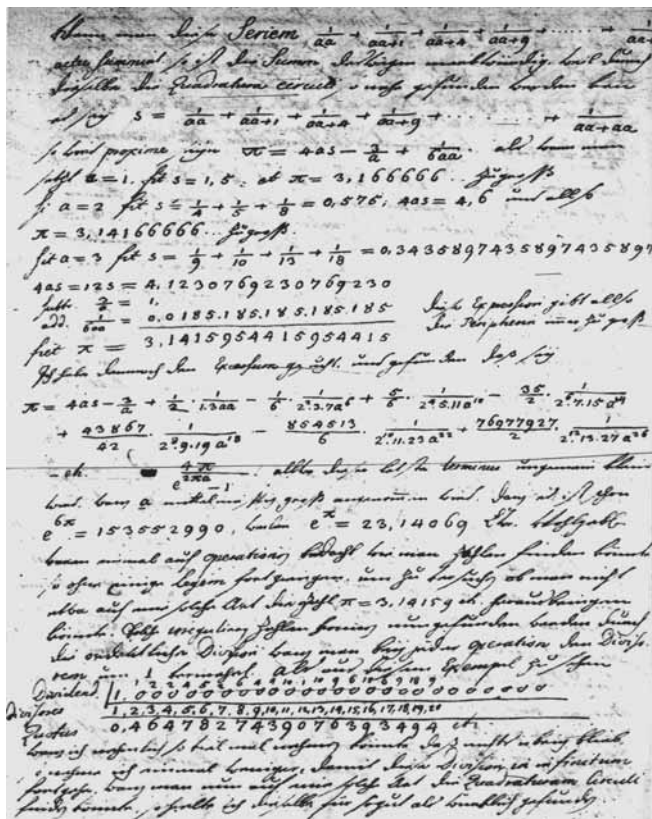 Wann man diese Seriem 1/aa + 1/(aa+1) + 1/(aa+4) + 1/(aa+9) + ........ + 1/(aa
so ist die Summ
Quadratura circuli gefunden werden kan
es sey s = 1/aa + 1/(aa+1) + 1/(aa+4) + 1/(aa+9) + ........ + 1/(aa+aa)
so wird proxime seyn π = 4as − 3/a + 1/(6aa). als wann man
setzt a=1. fit s=1,5; et π = 3,166666... zu groß
si a=2 fit s = 1/4 + 1/5 + 1/8 = 0,575; 4as = 4,6 und also
π = 3,14166666... zu groß.
sit a=3 fit s = 1/9 + 1/10 + 1/13 + 1/18 = 0,3435897435897435897
4as = 12s = 4,1230769230769230
subtr. 3/a = 1, diese Expression gibt also
add. 1/(6aa) = 0,0185.185.185.185.185 die Peripherie immer zu groß
fiet π = 3,1415954415954415
Ich habe demnach den Excessum gesucht und gefunden daß sey
π = 4as − 3/a + 1/2 · 1/(1.3aa) − 1/6 · 1/(2².3.7a⁶) + 5/6 · 1/(2⁴.5.11a¹⁰) − 35/2 · 1/(2⁶.7.15a¹⁴)
+ 43867/42 · 1/(2⁸.9.19a¹⁸) − 854513/6 · 1/(2¹⁰.11.23a²²) + 76977927/2 · 1/(2¹².13.27a²⁶)
− etc. 4π/(e^(2πa)−1). allwo dieser letzte terminus ungemein klein
wird, wann a mittelmäßig groß angenommen wird. dann es ist schon
e^(6π) = 153552990, weilen e^π = 23,14069
einmal auf operationes bedacht wie man Zahlen finden könnte
so ohne einige legem fortgiengen, um zu versuchen ob man nicht
etwa auf eine solche Art die Zahl π = 3,14159 etc. herausbringen
könnte. Solche Zahlen können nun gefunden werden durch
die ordentliche Division wann man bey jeder operation den Diviso-
rem um 1 vermehrt. als aus diesem Exempel zu sehen
Dividend. 1,000000000000000000
Divisores 1,2,3,4,5,6,7,8,9,10,11,12,13,14,15,16,17,18,19,20
Quotus 0,4647827439076393494 etc.
wann ich so viel mal nehmen könnte daß nichts übrig bleibt
so nehme ich einmal weniger, damit diese Division in infinitum
fortgehe. wann man nun auf eine solche Art die Quadraturam Circuli
finden könnte, so hielte ich dieselbe für so gut als würklich gefunden